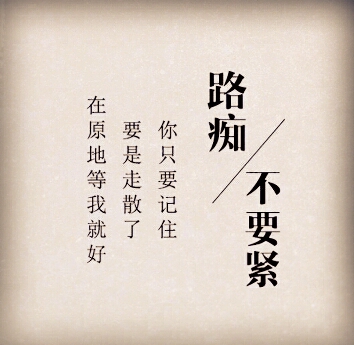 路痴
不要紧
你只要记住
要是走散了
在原地等我就好